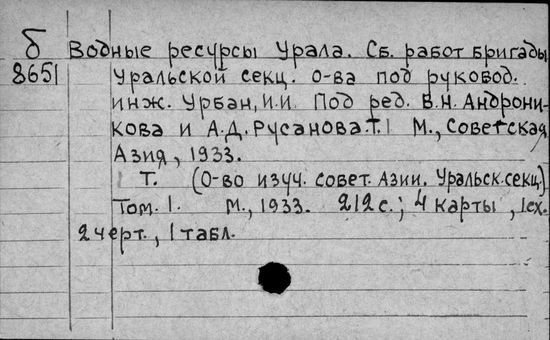 б Водные ресурсы Урала. Сб. работ бригады
8651 Уральской секц. о-ва под руковод.
инж. Урбан, И.И. Под ред. В.Н. Андрони-
кова и А.Д. Русанова. Т.1 М., Советская
Азия, 1933.
Т. (О-во изуч. совет. Азии. Уральск. секц.)
Том. 1. М., 1933. 212 с.; 4 карты, 1 сх.
2 черт., 1 табл.